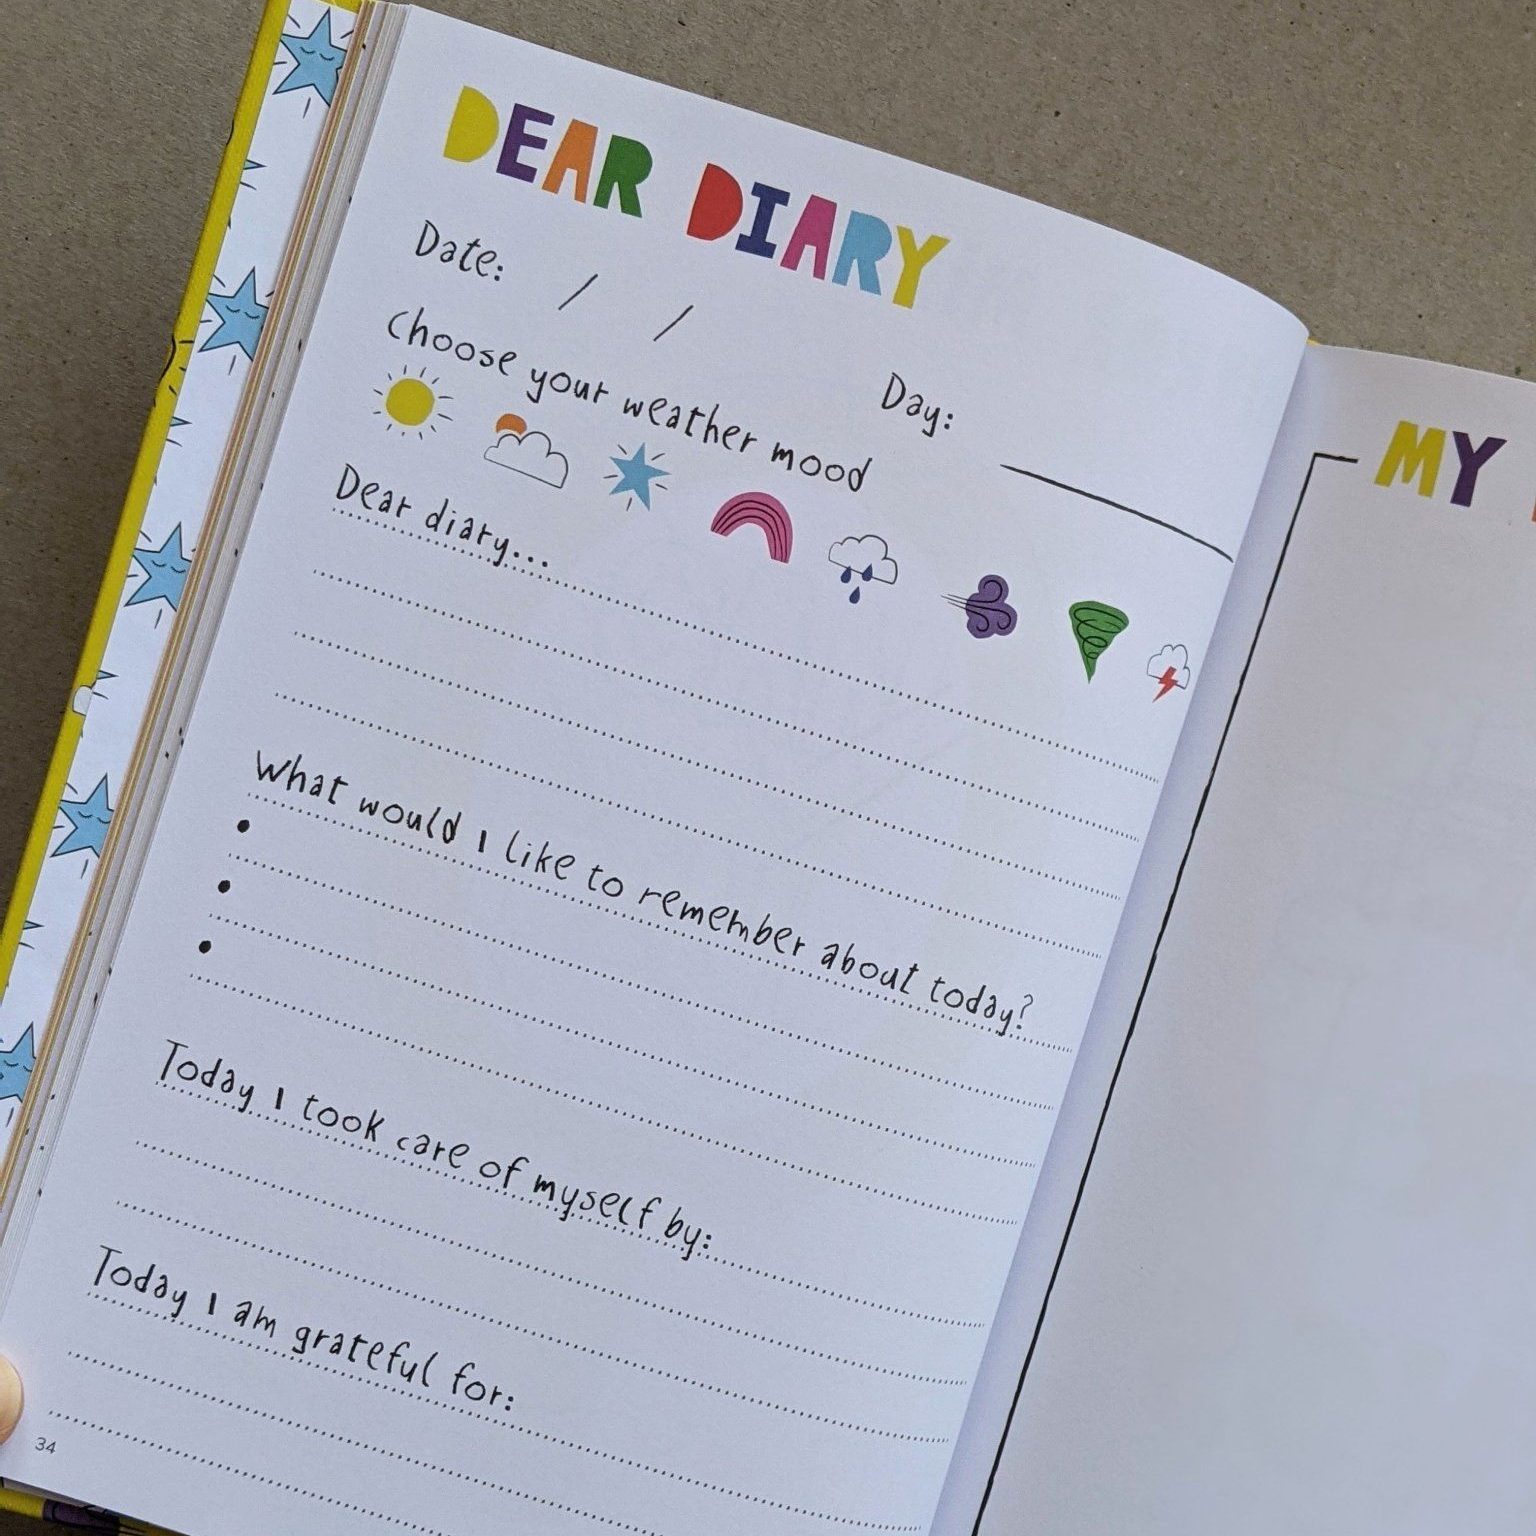 DEAR DIARY
Date: / / Day:
Choose your weather mood
Dear diary...
What would I like to remember about today?
•
•
•
Today I took care of myself by:
Today I am grateful for:
34
MY